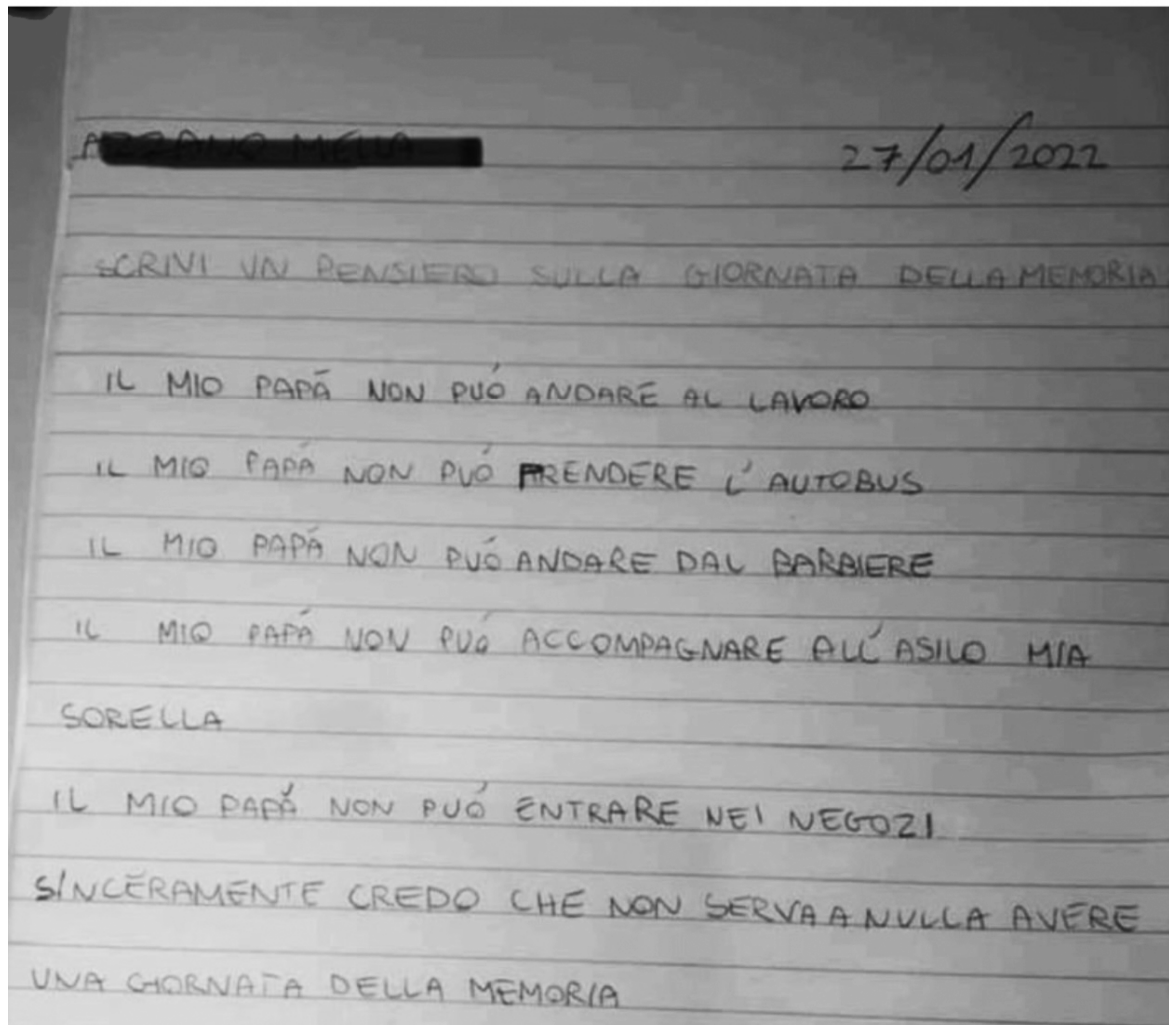 27/01/2022
SCRIVI UN PENSIERO SULLA GIORNATA DELLA MEMORIA
IL MIO PAPÁ NON PUÓ ANDARE AL LAVORO
IL MIO PAPÁ NON PUÓ PRENDERE L'AUTOBUS
IL MIO PAPÁ NON PUÓ ANDARE DAL BARBIERE
IL MIO PAPÁ NON PUÓ ACCOMPAGNARE ALL'ASILO MIA
SORELLA
IL MIO PAPÁ NON PUÓ ENTRARE NEI NEGOZI
SINCERAMENTE CREDO CHE NON SERVA A NULLA AVERE
UNA GIORNATA DELLA MEMORIA